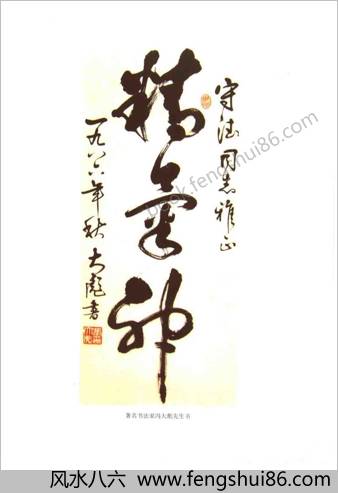 守同志雅正
精氣神
一九八六年秋 大彪書
著名书法家冯大彪先生书
book.fengshui86.com
风水八六 www.fengshui86.com